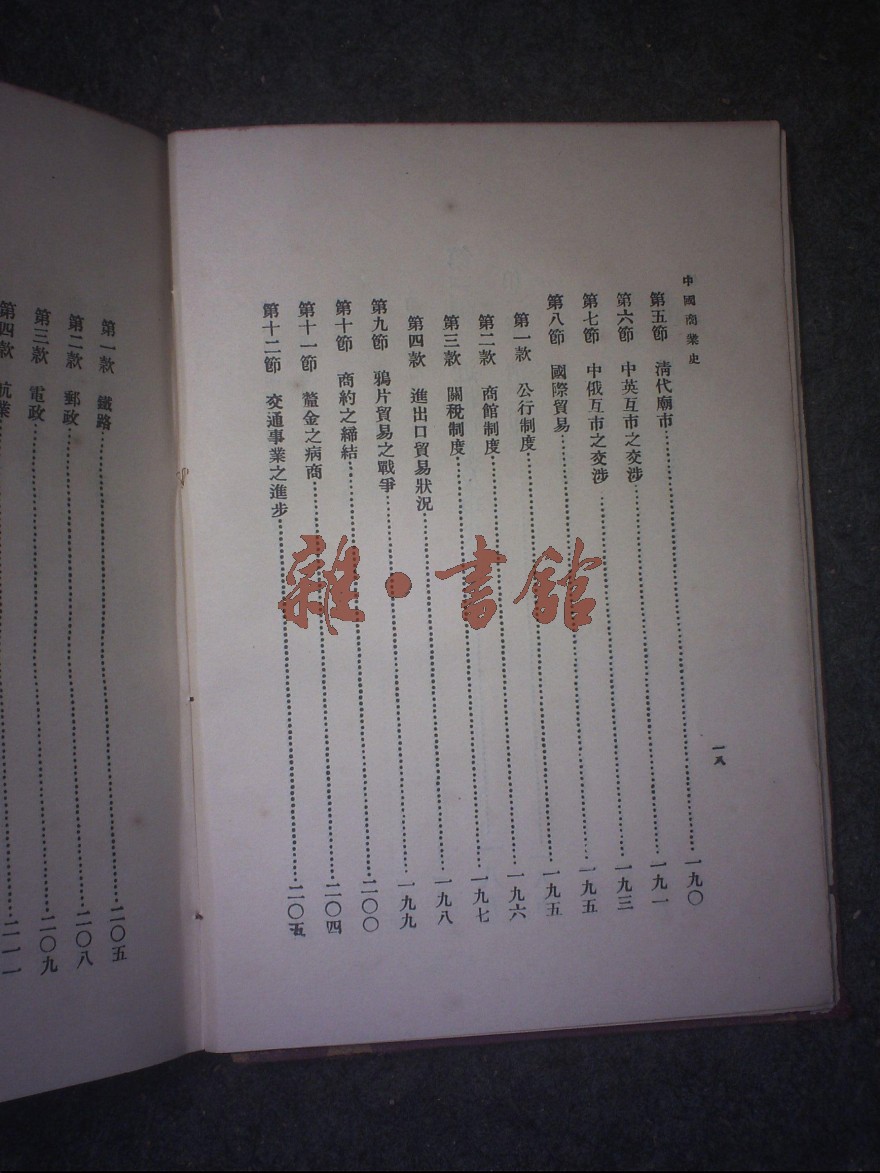 中國商業史
一八
第五節 清代廟市……一九〇
第六節 中英互市之交涉……一九一
第七節 中俄互市之交涉……一九三
第八節 國際貿易……一九五
第一款 公行制度……一九五
第二款 商館制度……一九六
第三款 關稅制度……一九七
第四款 進出口貿易狀況……一九八
第九節 鴉片貿易之戰爭……一九九
第十節 商約之締結……二〇〇
第十一節 釐金之病商……二〇四
第十二節 交通事業之進步……二〇五
第一款 鐵路……二〇五
第二款 郵政……二〇八
第三款 電政……二〇九
第四款 航業……二一一
雜·書館